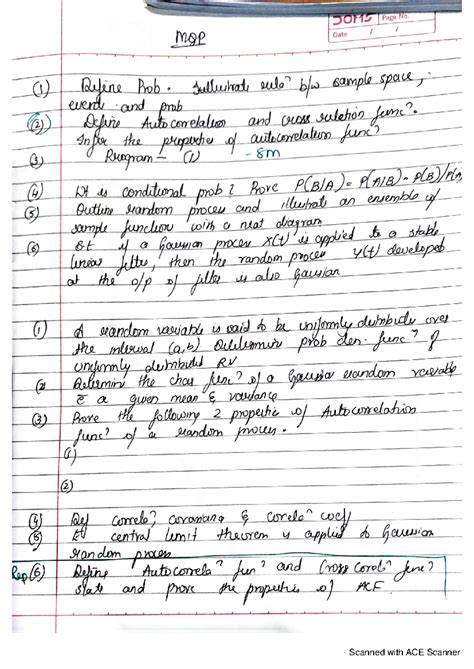 Page No.
Date / /
MQP
(1) Define Prob. Illustrate relaⁿ b/w sample space,
event and prob
(2) Define Autocorrelation and cross relation funcⁿ.
Infer the properties of autocorrelation funcⁿ
(3) Program – (1) – 8M
(4) Wt is conditional prob? Prove P(B/A) = P(A/B) = P(B)/P(A
(5) Outline random process and illustrate an ensemble of
sample function with a neat diagram
(6) St if a Gaussian process X(t) is applied to a stable
linear filter, then the random process Y(t) developed
at the o/p of filter is also Gaussian
(1) A random variable is said to be uniformly distributed over
the interval (a,b) Determine prob den. funcⁿ of
uniformly distributed RV
(2 Determine the char funcⁿ of a Gaussian random variable
c̄ a given mean & variance
(3) Prove the following 2 properties of Autocorrelation
funcⁿ of a random process.
(1)
(2)
(4) Def correlaⁿ, covariance & correlaⁿ coeff
(5) St central limit theorem is applied to Gaussian
random process
Rep (6) Define Autocorrelaⁿ funⁿ and Cross Corelⁿ funcⁿ
state and prove the properties of ACF.
Scanned with ACE Scanner